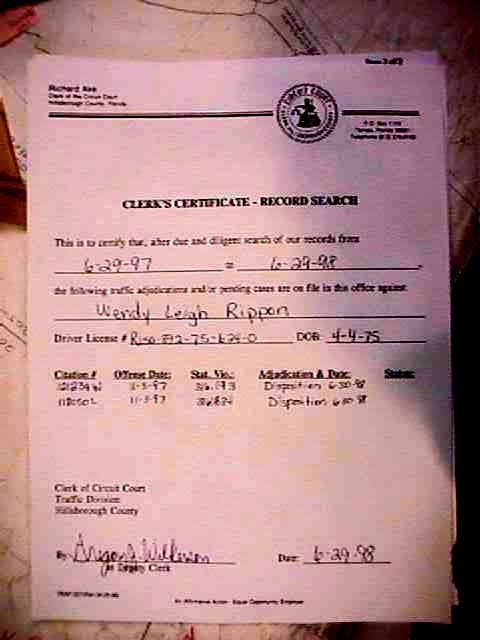 Richard Ake
Clerk of the Circuit Court
Hillsborough County, Florida
CIRCUIT COURT
P.O. Box
Tampa, Florida
Telephone
CLERK'S CERTIFICATE - RECORD SEARCH
This is to certify that, after due and diligent search of our records from
6-29-97 = 6-29-98,
the following traffic adjudications and/or pending cases are on file in this office against
Wendy Leigh Rippon
Driver License # DOB: 4-4-75
Citation # Offense Date: Stat. Vio.: Adjudication & Date: Status:
11-3-97 Disposition 6-30-98
11-3-97 Disposition 6-30-98
Clerk of Circuit Court
Traffic Division
Hillsborough County
By: Wilkerson Date: 6-29-98
Deputy Clerk
An Affirmative Action - Equal Opportunity Employer